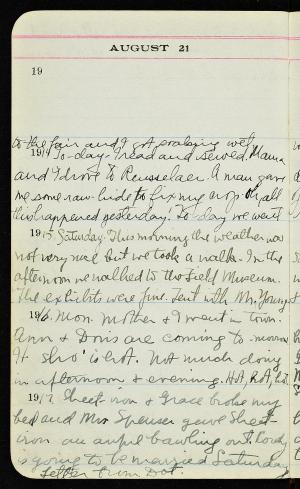 AUGUST 21
19
to the fair and I got soaking wet
1914 To-day I read and sewed. Mama
and I drove to Rensselaer. A man gave
me some raw-hide to fix my crop. Oh all
this happened yesterday. To-day we went
1915 Saturday. This morning the weather was
not very nice but we took a walk. In the
afternoon we walked to the Field Museum.
The exhibits were fine. Went with Mr. Young
1916. Mon. Mother & I went in town.
Ann & Doris are coming to-morrow
It sho' is hot. Not much doing
in afternoon & evening. Hot, Hot,
1917 Sheet-iron & Grace broke my
bed and Mrs Spenser gave Sheet
iron an awful bawling out.
is going to be married Saturday
Letter from Dot.